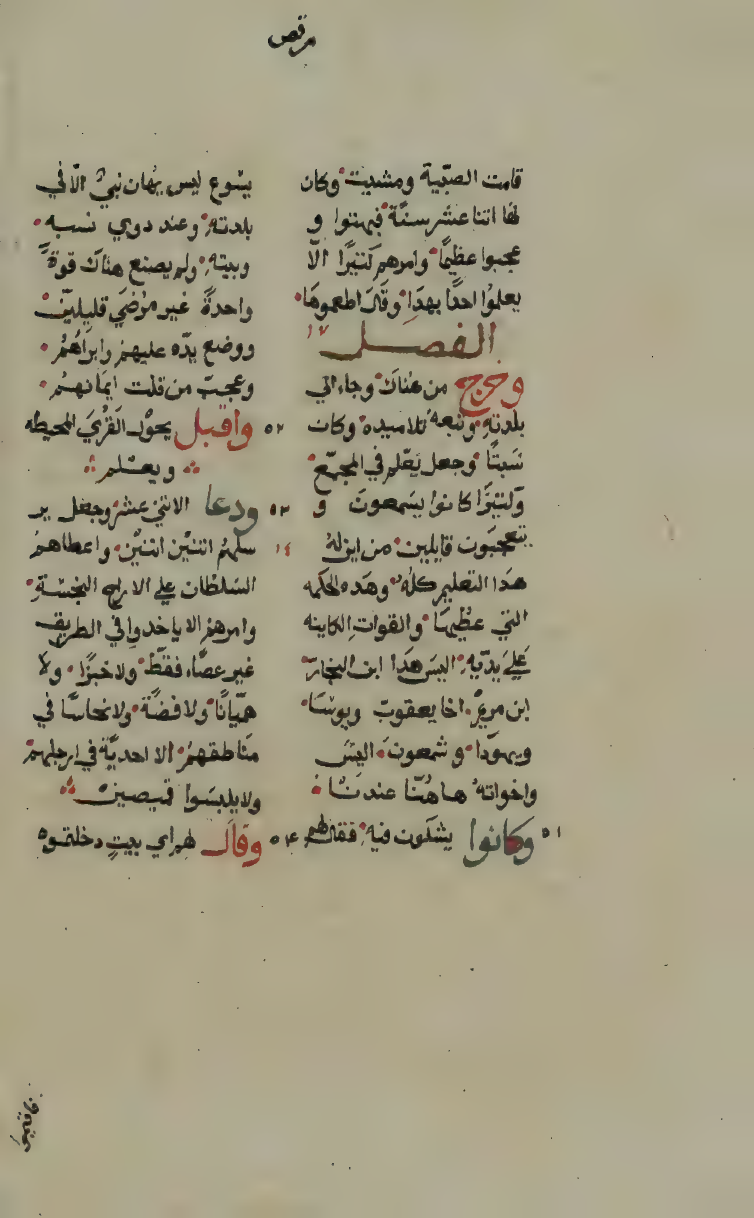 مرقص
قامت الصبية ومشيت وكان
لها اثنا عشر سنة فبهتوا و
عجبوا عظيما وامرهم كتيرا الا
يعلموا احدا بهدا وقال اطعموها
الفصل ١٢
وخرج من هناك وجاء الي
بلدته وتبعه تلاميده وكان
سبتا وجعل يعلم في المجمع
وكتيرا كانوا يسمعون و
يتعجبون قايلين من اين له
هدا التعليم كله وهده الحكمه
التي عظيها والقوات الكاينه
علي يديه اليس هدا ابن النجار
ابن مريم اخا يعقوب ويوسا
ويهودا وشمعون اليس
واخواته هاهنا عندنا
٥١ وكانوا يشكون فيه فقال لهم
يشوع ليس يهان نبي الا في
بلدته وعند دوي نسبه
وبيته ولم يصنع هناك قوة
واحدة غير مرضي قليلين
ووضع يده عليهم وابراهم
وعجب من قلت ايمانهم
٥٢ واقبل يحول القري المحيطه
ويعلم
٥٣ ودعا الاثني عشر وجعل ير
١٤ سلهم اتنين اتنين واعطاهم
السلطان علي الارواح النجسة
وامرهم الا ياخدوا في الطريق
غير عصاء فقط ولا خبزا ولا
هميانا ولا فضة ولا نحاسا في
مناطقهم الا احدية في ارجلهم
ولا يلبسوا قميصين
٥٤ وقال لهم اي بيت دخلتموه